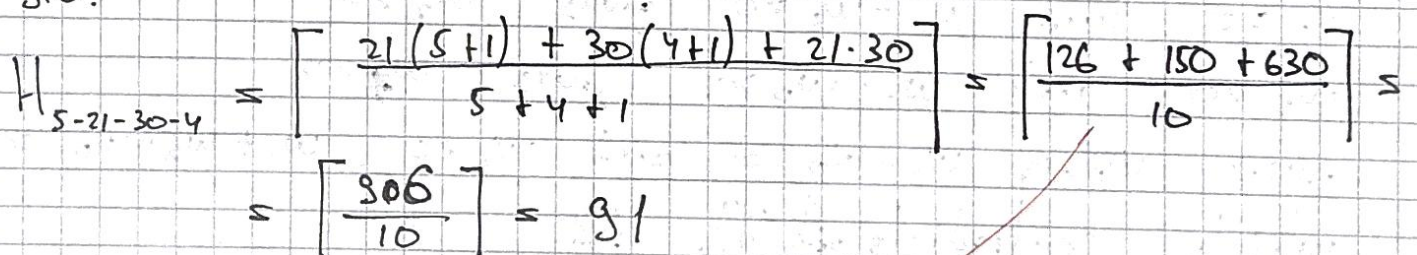 H₅₋₂₁₋₃₀₋₄ = ⌈(21(5+1) + 30(4+1) + 21·30)/(5+4+1)⌉ = ⌈(126 + 150 + 630)/10⌉ =
= ⌈906/10⌉ = 91